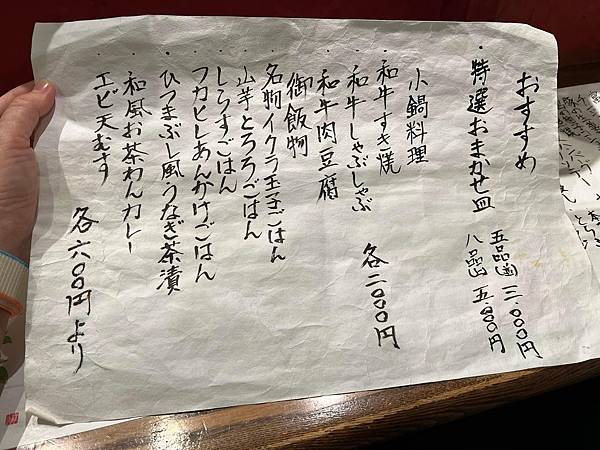 おすすめ
・特選おまかせ皿
五品盛 三、〇〇〇円
八品盛 五、〇〇〇円
小鍋料理
・和牛すき焼
・和牛しゃぶしゃぶ
・和牛肉豆腐
各二〇〇〇円
御飯物
・名物イクラ玉子ごはん
・山芋とろろごはん
・しらすごはん
・フカヒレあんかけごはん
・ひつまぶし風うなぎ茶漬
・和風お茶わんカレー
・エビ天むす
各六〇〇円より